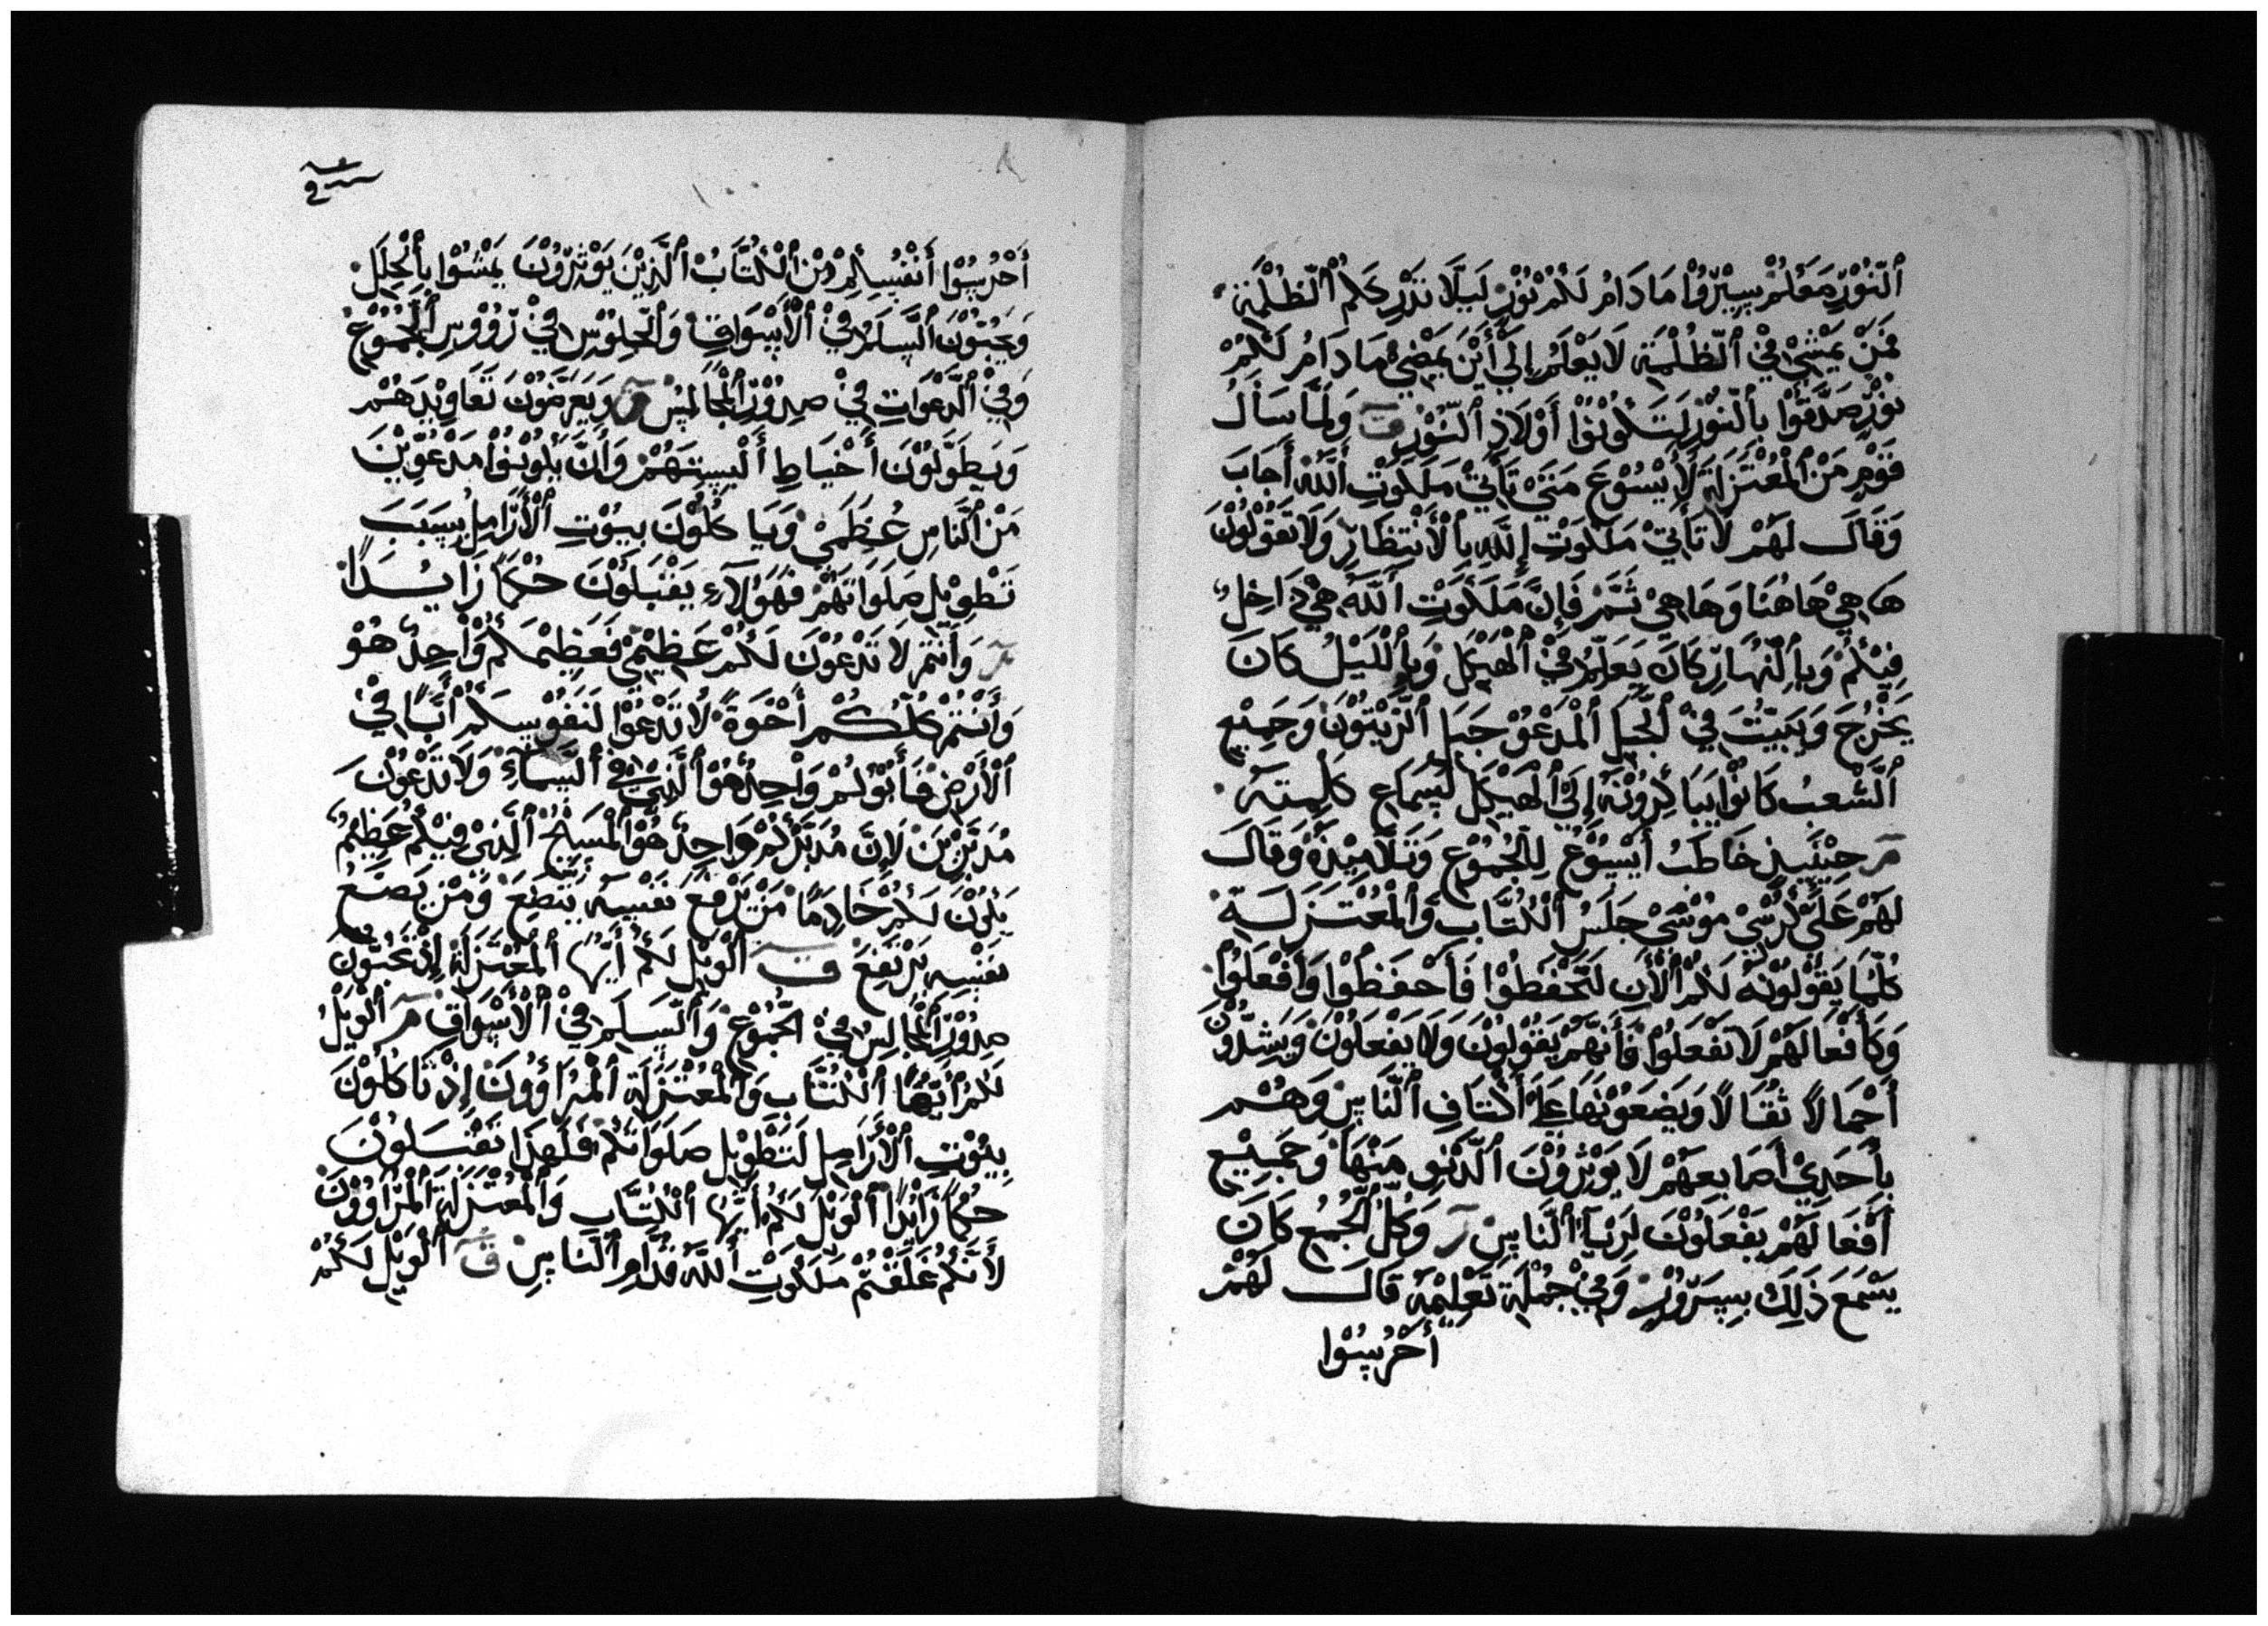 اَلنُّوْرُ مَعَكُمْ سِيْرُوْا مَا دَامَ لَكُمْ نُوْرٌ لَيَلَّا تَدْرِكَكُمْ اَلظُّلْمَةُ
فَمَنْ يَمْشِيْ فِيْ اَلظُّلْمَةِ لَا يَعْلَمُ إِلَيْ أَيْنَ يَمْضِيْ مَا دَامَ لَكُمْ
نُوْرٌ صَدَّقُوْا بِاَلنُّوْرِ لَتَكُوْنُوْا أَوْلَادِ اَلنُّوْرِ ق وَلَمَّا سَأَلَ
قَوْمٍ مَنْ اَلْمُعْتَزِلَةِ لَأَيْسُوْعَ مَتَيْ تَأْتِيْ مَلَكُوْتِ اَللّٰهِ أَجَابَ
وَقَالَ لَهُمْ لَا تَأْتِيْ مَلَكُوْتِ اَللّٰهِ بِاَلْأَنْتِظَارِ وَلَا تَقُوْلُوْنَ
هَا هِيْ هَاهُنَا وَهَا هِيْ ثَمَّ فَإِنَّ مَلَكُوْتِ اَللّٰهِ هِيْ دَاخِلٌ
فِيْكُمْ وَبِاَلنَّهَارِ كَانَ يَعَلِّمُ فِيْ اَلْهَيْكَلِ وَبِاَللَّيْلِ كَانَ
يَخْرُجَ وَيَبِيْتُ فِيْ اَلْجَبَلِ اَلْمَدْعُوْ جَبَلِ اَلزَّيْتُوْنَ وَجَمِيْعِ
اَلشَّعْبُ كَانُوْا يَبَاكِرُوْنَهُ إِلَيْ اَلْهَيْكَلِ لَسَمَاعِ كَلِمَتِهِ
مر حِيْنَيِيذٍ خَاطَبُ أَيْسُوْعُ لِلْجُمُوْعِ وَتَلَامِيْذِهِ وَقَالَ
لَهُمْ عَلَيْ كُرْسِيْ مُوْسَيْ جَلَسُ اَلْكُتَّابِ وَاَلْمُعْتَزَلَةِ
كُلَّمَا يَقُوْلُوْنَهُ لَكُمْ اَلْأَنِ لَتَحْفَظُوْا فَأَحْفَظُوْا وَأَفْعَلُوْا
وَكَأَفْعَالَهُمْ لَا تَفْعَلُوْا فَأَنَّهُمْ يَقُوْلُوْنَ وَلَا يَفْعَلُوْنَ وَيَشِدُّوْنَ
أَحْمَالًا ثُقَالًا وَيَضَعُوْنَهَا عَلَيْ أَكْتَافِ اَلنَّاسِ وَهُمْ
بِأَحَدِيْ أَصَابِعِهُمْ لَا يَوْثِرُوْنَ اَلدَّنُوِ مِنْهَا وَجَمِيْعِ
أَفْعَالَهُمْ يَفْعَلُوْنَ لِرِيَا اَلنَّاسِ ر وَكُلُّ اَلْجُمُعِ كَانَ
يَسْمَعَ ذَلِكَ بِسِرُوْرٍ وَفِيْ جُمْلَةِ تَعْلِيْمِهِ قَالَ لَهُمْ
أَحْرُسُوْا
أَحْرُسُوْا أَنْفُسِكُمْ مِنْ اَلْكُتَّابُ اَلَّذِيْنَ يَوْثِرُوْنَ يَمْشُوْا بِأَلْحُلَلِ
وَيَحُبُّوْنَ اَلسَّلَمُ فِيْ اَلْأَسْوَاقِ وَاَلْجُلُوْسِ فِيْ رُؤُوْسِ اَلْجُمُوْعِ
وَفِيْ اَلدَّعْوَاتِ فِيْ صِدُوْرِ اَلْمَجَالِسُ وَيَعَرِّضُوْنَ تَعَاوِيْذَهُمْ
وَيَطَوِّلُوْنَ أَخْيَاطِ أَلْبِسِتَهُمْ وَأَنَّ يَكُوْنُوْا مَدْعُوِّيْنَ
مَنْ اَلنَّاسِ عُظَمَيْ وَيَاكُلُوْنَ بِيُوْتِ اَلْأَرَامِلِ بِسَبَبَ
تَطْوِيْلِ صَلَوَاتَهُمْ فَهَوُلَآءِ يَقْبَلُوْنَ حُكْمًا زَايْدًا
مر وَأَنْتُمْ لَا تَدْعُوْنَ لَكُمْ عَظِيْمٌ فَعَظِيْمَكُمْ وَاحِدٌ هُوْ
وَأَنْتُمْ كُلُّكُمْ أَخْوَةً لَا تَدْعُوْا لَنَفُوْسِكُمْ أَبًا فِيْ
اَلْأَرْضِ فَأَبُوْكُمْ وَاْحِدٌ هُوْ اَلَّذِيْ فِيْ اَلسَّمَاءِ وَلَا تَدْعُوْنَ
مُدَبِّرِيْنَ لَإِنَّ مُدَبِّرَكُمْ وَاحِدٌ هُوْ اَلْمَسِيْحُ اَلَّذِيْ فِيْكُمْ عَظِيْمٌ
يَكُوْنَ لَكُمْ خَادِمًا مَنْ يَرْفَعَ نَفْسِهِ يَتَضِعَ وَمَنْ يَضَعُ
نَفْسِهِ يَرْتَفِعَ ق اَلْوَيْلُ لَكُمْ أَيُّهَا اَلْمُعْتَزَلَةُ إِذْ تَحُبُّوْنَ
صِدُوْرِ اَلْمَجَالِسِ فِيْ الْجُمُوْعِ وَاَلسَّلَمِ فِيْ اَلْأَسْوَاقِ مر اَلْوَيْلُ
لَكُمْ أَيُّهَا اَلْكُتَّابِ وَاَلْمُعْتَزَلَةِ اَلْمُرَاؤُوْنَ إِذْ تَاكُلُوْنَ
بِيُوْتِ اَلْأَرَامِلِ لَتَطْوِيْلِ صَلَوَاتَكُمْ فَلَهَذَا تَقْبَلُوْنَ
حُكْمًا زَايْدًا اَلْوَيْلُ لَكُمْ أَيُّهَا اَلْكُتَّابِ وَاَلْمُعْتَزَلَةِ اَلْمُرَاؤُوْنَ
لَأَنَّكُمْ غَلَّقْتُمْ مَلَكُوْتِ اَللّٰهِ قُدَّامِ اَلنَّاسِ ق اَلْوَيْلُ لَكُمْ